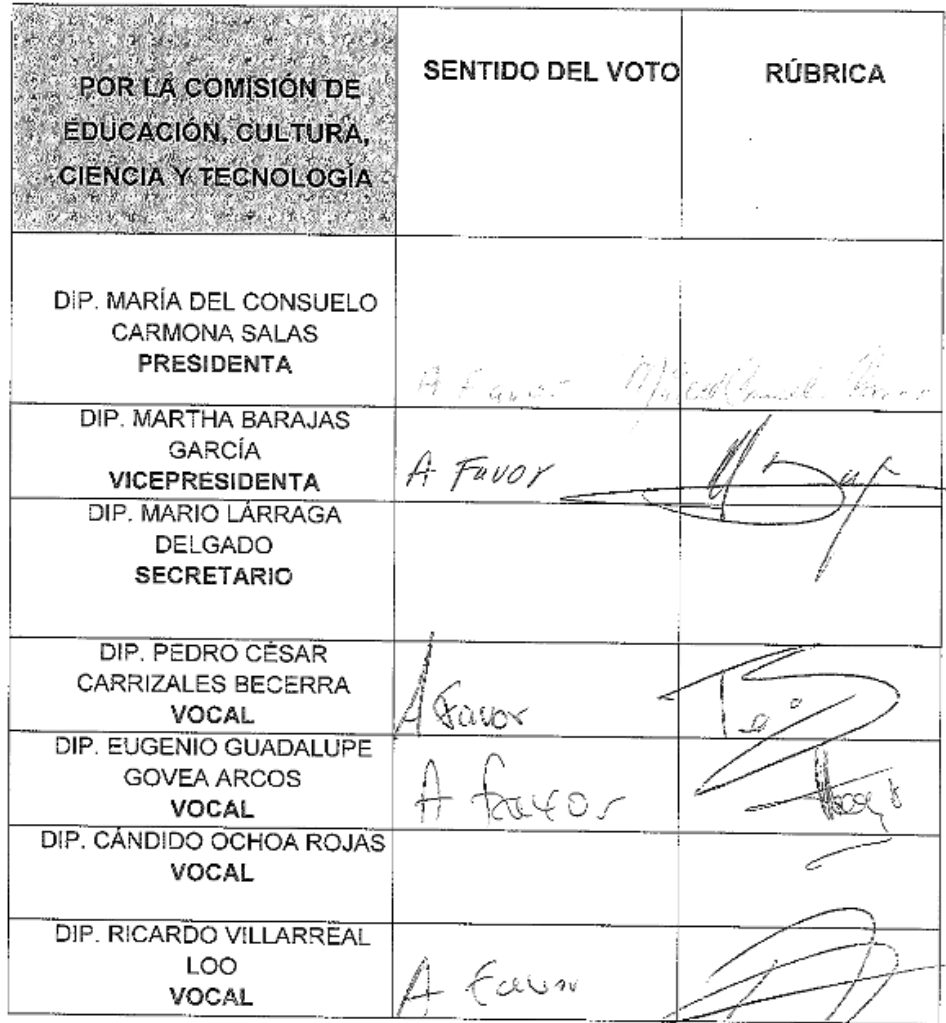 POR LA COMISIÓN DE
EDUCACIÓN, CULTURA,
CIENCIA Y TECNOLOGÍA
SENTIDO DEL VOTO
RÚBRICA
DIP. MARÍA DEL CONSUELO
CARMONA SALAS
PRESIDENTA
A Favor
DIP. MARTHA BARAJAS
GARCÍA
VICEPRESIDENTA
A Favor
DIP. MARIO LÁRRAGA
DELGADO
SECRETARIO
DIP. PEDRO CÉSAR
CARRIZALES BECERRA
VOCAL
A favor
DIP. EUGENIO GUADALUPE
GOVEA ARCOS
VOCAL
A favor
DIP. CÁNDIDO OCHOA ROJAS
VOCAL
DIP. RICARDO VILLARREAL
LOO
VOCAL
A favor